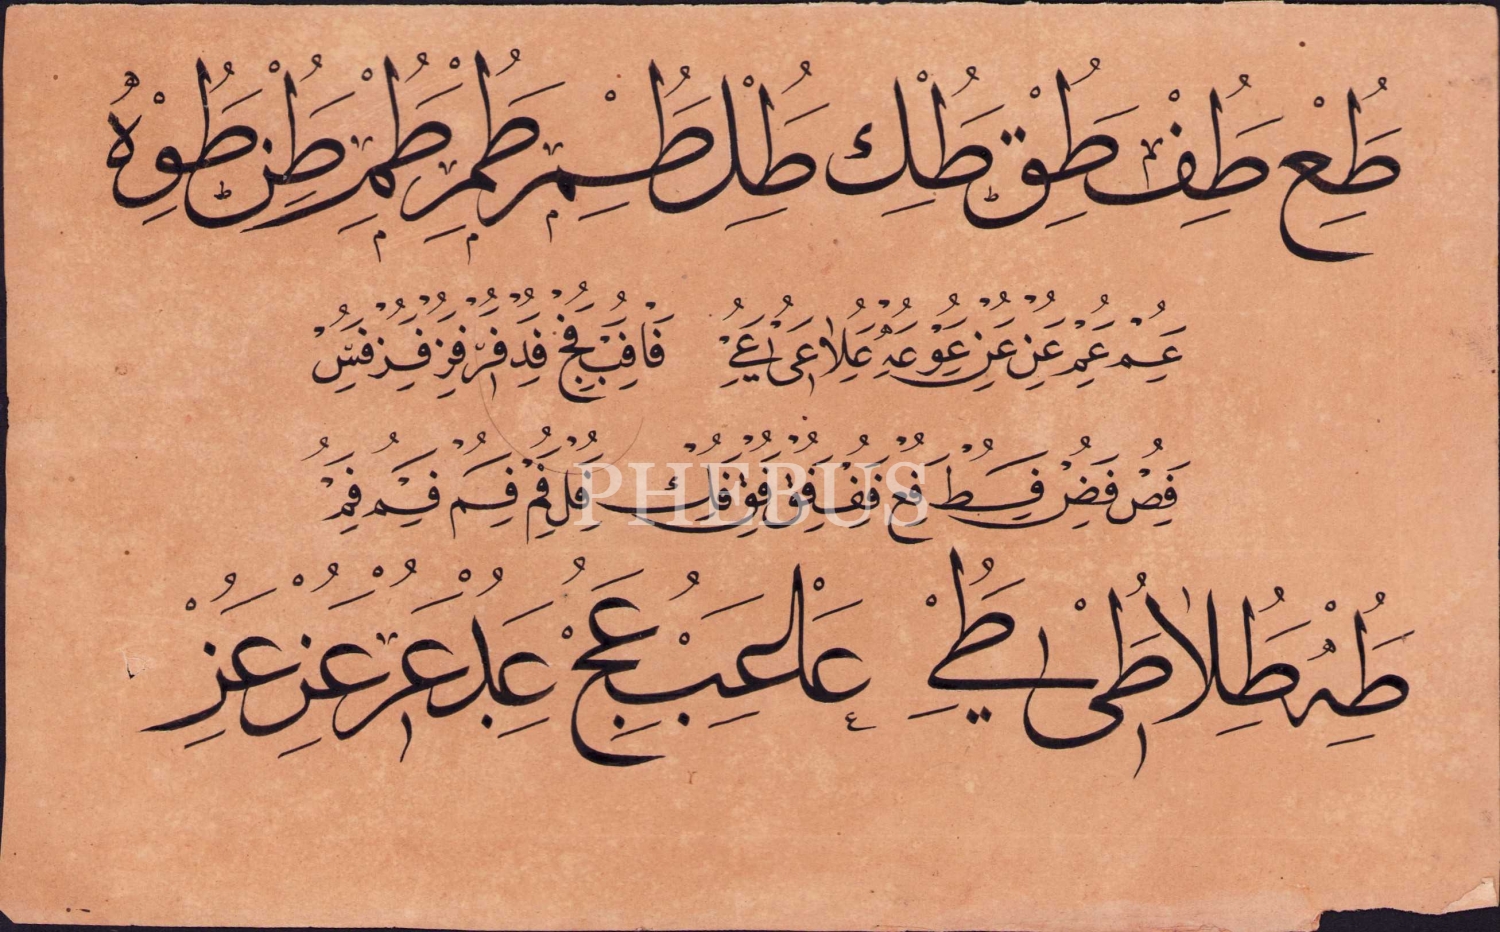 طع طف طق طك طل طم طم طم طن طو طه
عم عم عن عن عو عه علا عى عے فا فب فج فد فر فز فز فس
فص فض فط فع فف فق فق فك فل فم فم فم فم
PHEBUS
طه طلا طى طے عا عب عج عد عر عز عز